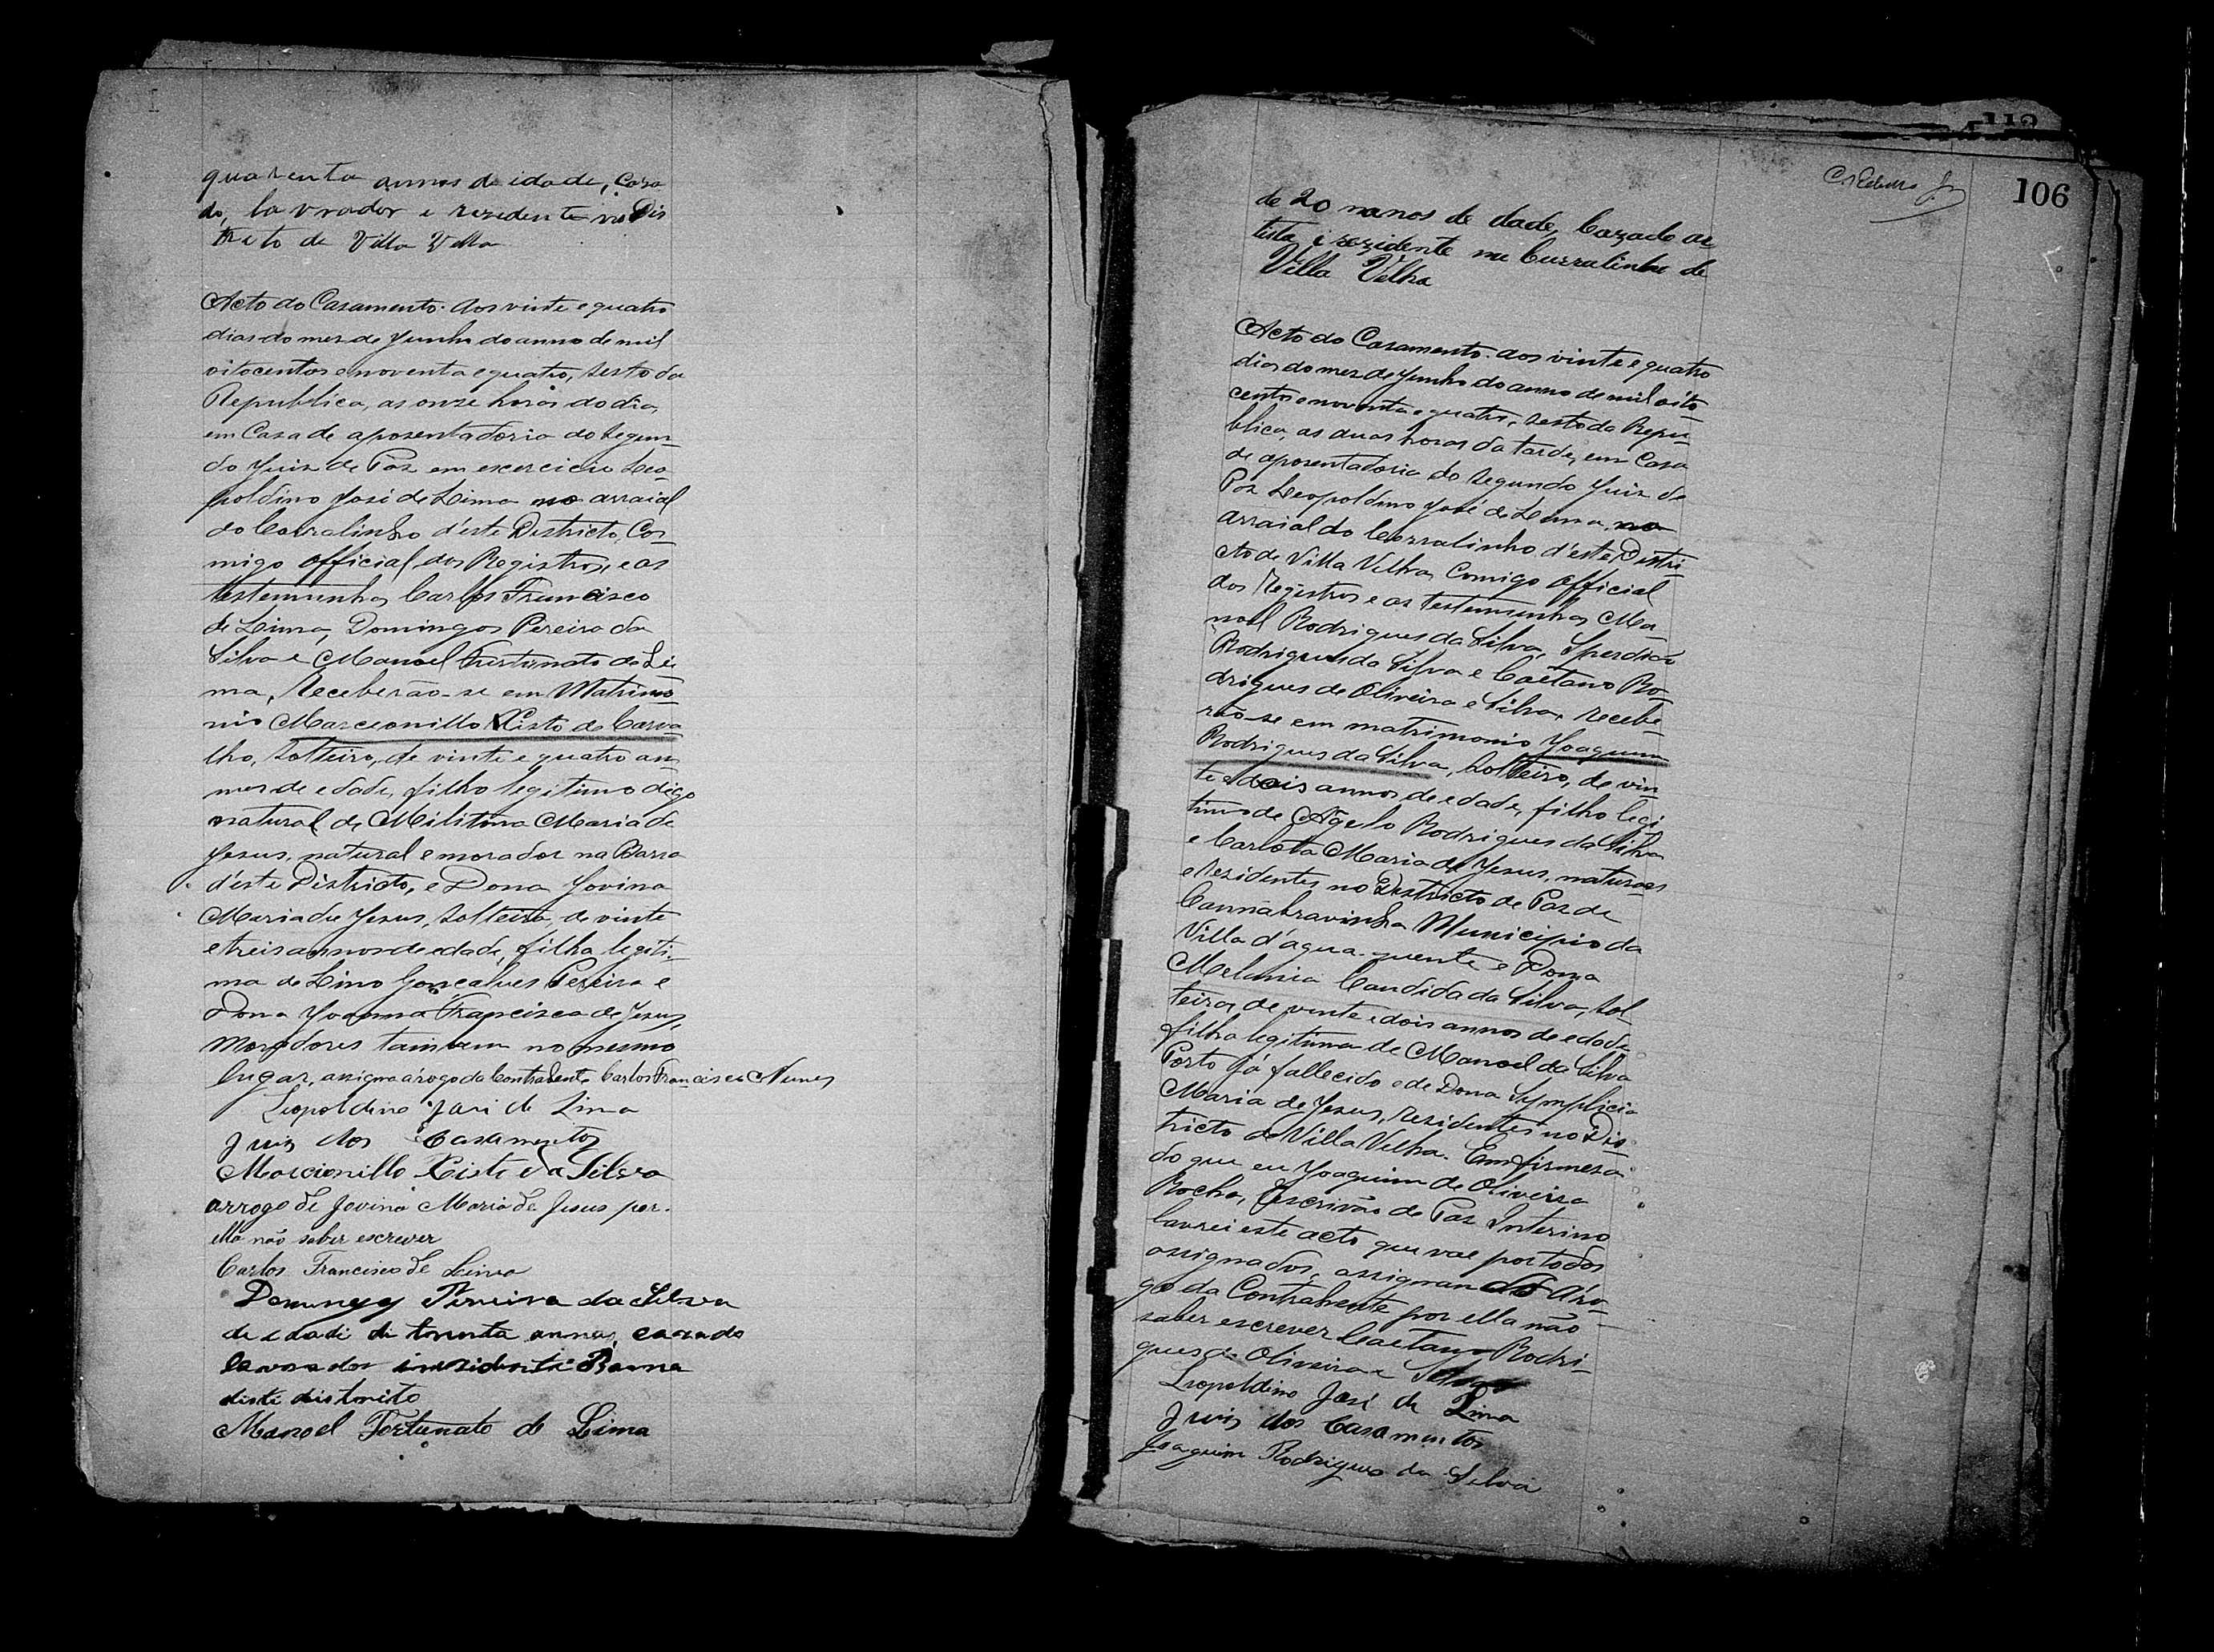 quarenta annos de idade, casa
do, lavrador e rezidente no Dis
trito de Villa Velha
Acto do Casamento. Aos vinte e quatro
dias do mez de Junho do anno de mil
oitocentos e noventa e quatro, sesto da
Republica, as onze horas do dia,
em Casa de aposentadoria do Segun-
do Juiz de Paz em exercicio Leo-
poldino José de Lima no arraial
do Curralinho d'este Districto, Co-
migo official dos Registros, e as
testemunhas Carlos Francisco
de Lima, Domingos Pereira da
Silva e Manoel Fortunato de Li-
ma, Receberão-se em Matrimo
nio Marcionillo Xisto de Carva
lho, Solteiro, de vinte e quatro an
nos de edade, filho legitimo digo
natural de Militina Maria de
Jesus, natural e morador na Barra
d'este Districto, e Dona Jovina
Maria de Jesus, solteira, de vinte
e treis annos de edade, filha legiti-
ma de Lino Gonçalves Pereira e
Dona Joanna Francisca de Jesus,
Moradores tambem no mesmo
lugar, assigna á rogo da Contrahente Carlos Francisco Nunes
Leopoldino José de Lima
Juiz dos Casamentos
Marcionillo Xisto da Silva
arrogo de Jovina Maria de Jesus por
ella não saber escrever
Carlos Francisco de Lima
Domingos Pereira da Silva
de idade de trinta annos, cazado
lavrador i rezidente Barra
deste districto
Manoel Fortunato de Lima
106
de 20 nanos de dade, Cazado ar
tista i rezidente no Curralinho de
Villa Velha
Acto do Casamento. Aos vinte e quatro
dias do mez de Junho do anno de mil oito
centos e noventa e quatro, sesto da Repu-
blica, as duas horas da tarde, em Casa
de aposentadoria do Segundo Juiz de
Paz Leopoldino José de Lima, no
arraial do Curralinho d'este Distri-
cto de Villa Velha, Comigo official
dos Registros e as testemunhas Ma-
noel Rodrigues da Silva, Sperdião
Rodrigues da Silva e Caetano Ro-
drigues de Oliveira e Silva, recebe-
rão-se em matrimonio Joaquim
Rodrigues da Silva, Solteiro, de vin-
te e dois annos de edade, filho legi-
timo de Agelo Rodrigues da Silva
e Carlota Maria de Jesus, naturaes
e Rezidentes no Districto de Paz de
Cannabravinha Municipio da
Villa d'agua-quente e Dona
Melania Candida da Silva, Sol
teira, de vinte e dois annos de edade
filha legitima de Manoel da Silva
Porto já fallecido e de Dona Symplicia
Maria de Jesus, rezidentes no Dis-
tricto de Villa Velha. Em firmeza
do que eu Joaquim de Oliveira
Rocha, Escrivão de Paz Interino
lavrei este acto que vae por todos
assignados, assignando á ro-
go da Contrahente por ella não
saber escrever Caetano Rodri-
gues de Oliveira e Silva
Leopoldino José de Lima
Juiz dos Casamentos
Joaquim Rodrigues da Silva